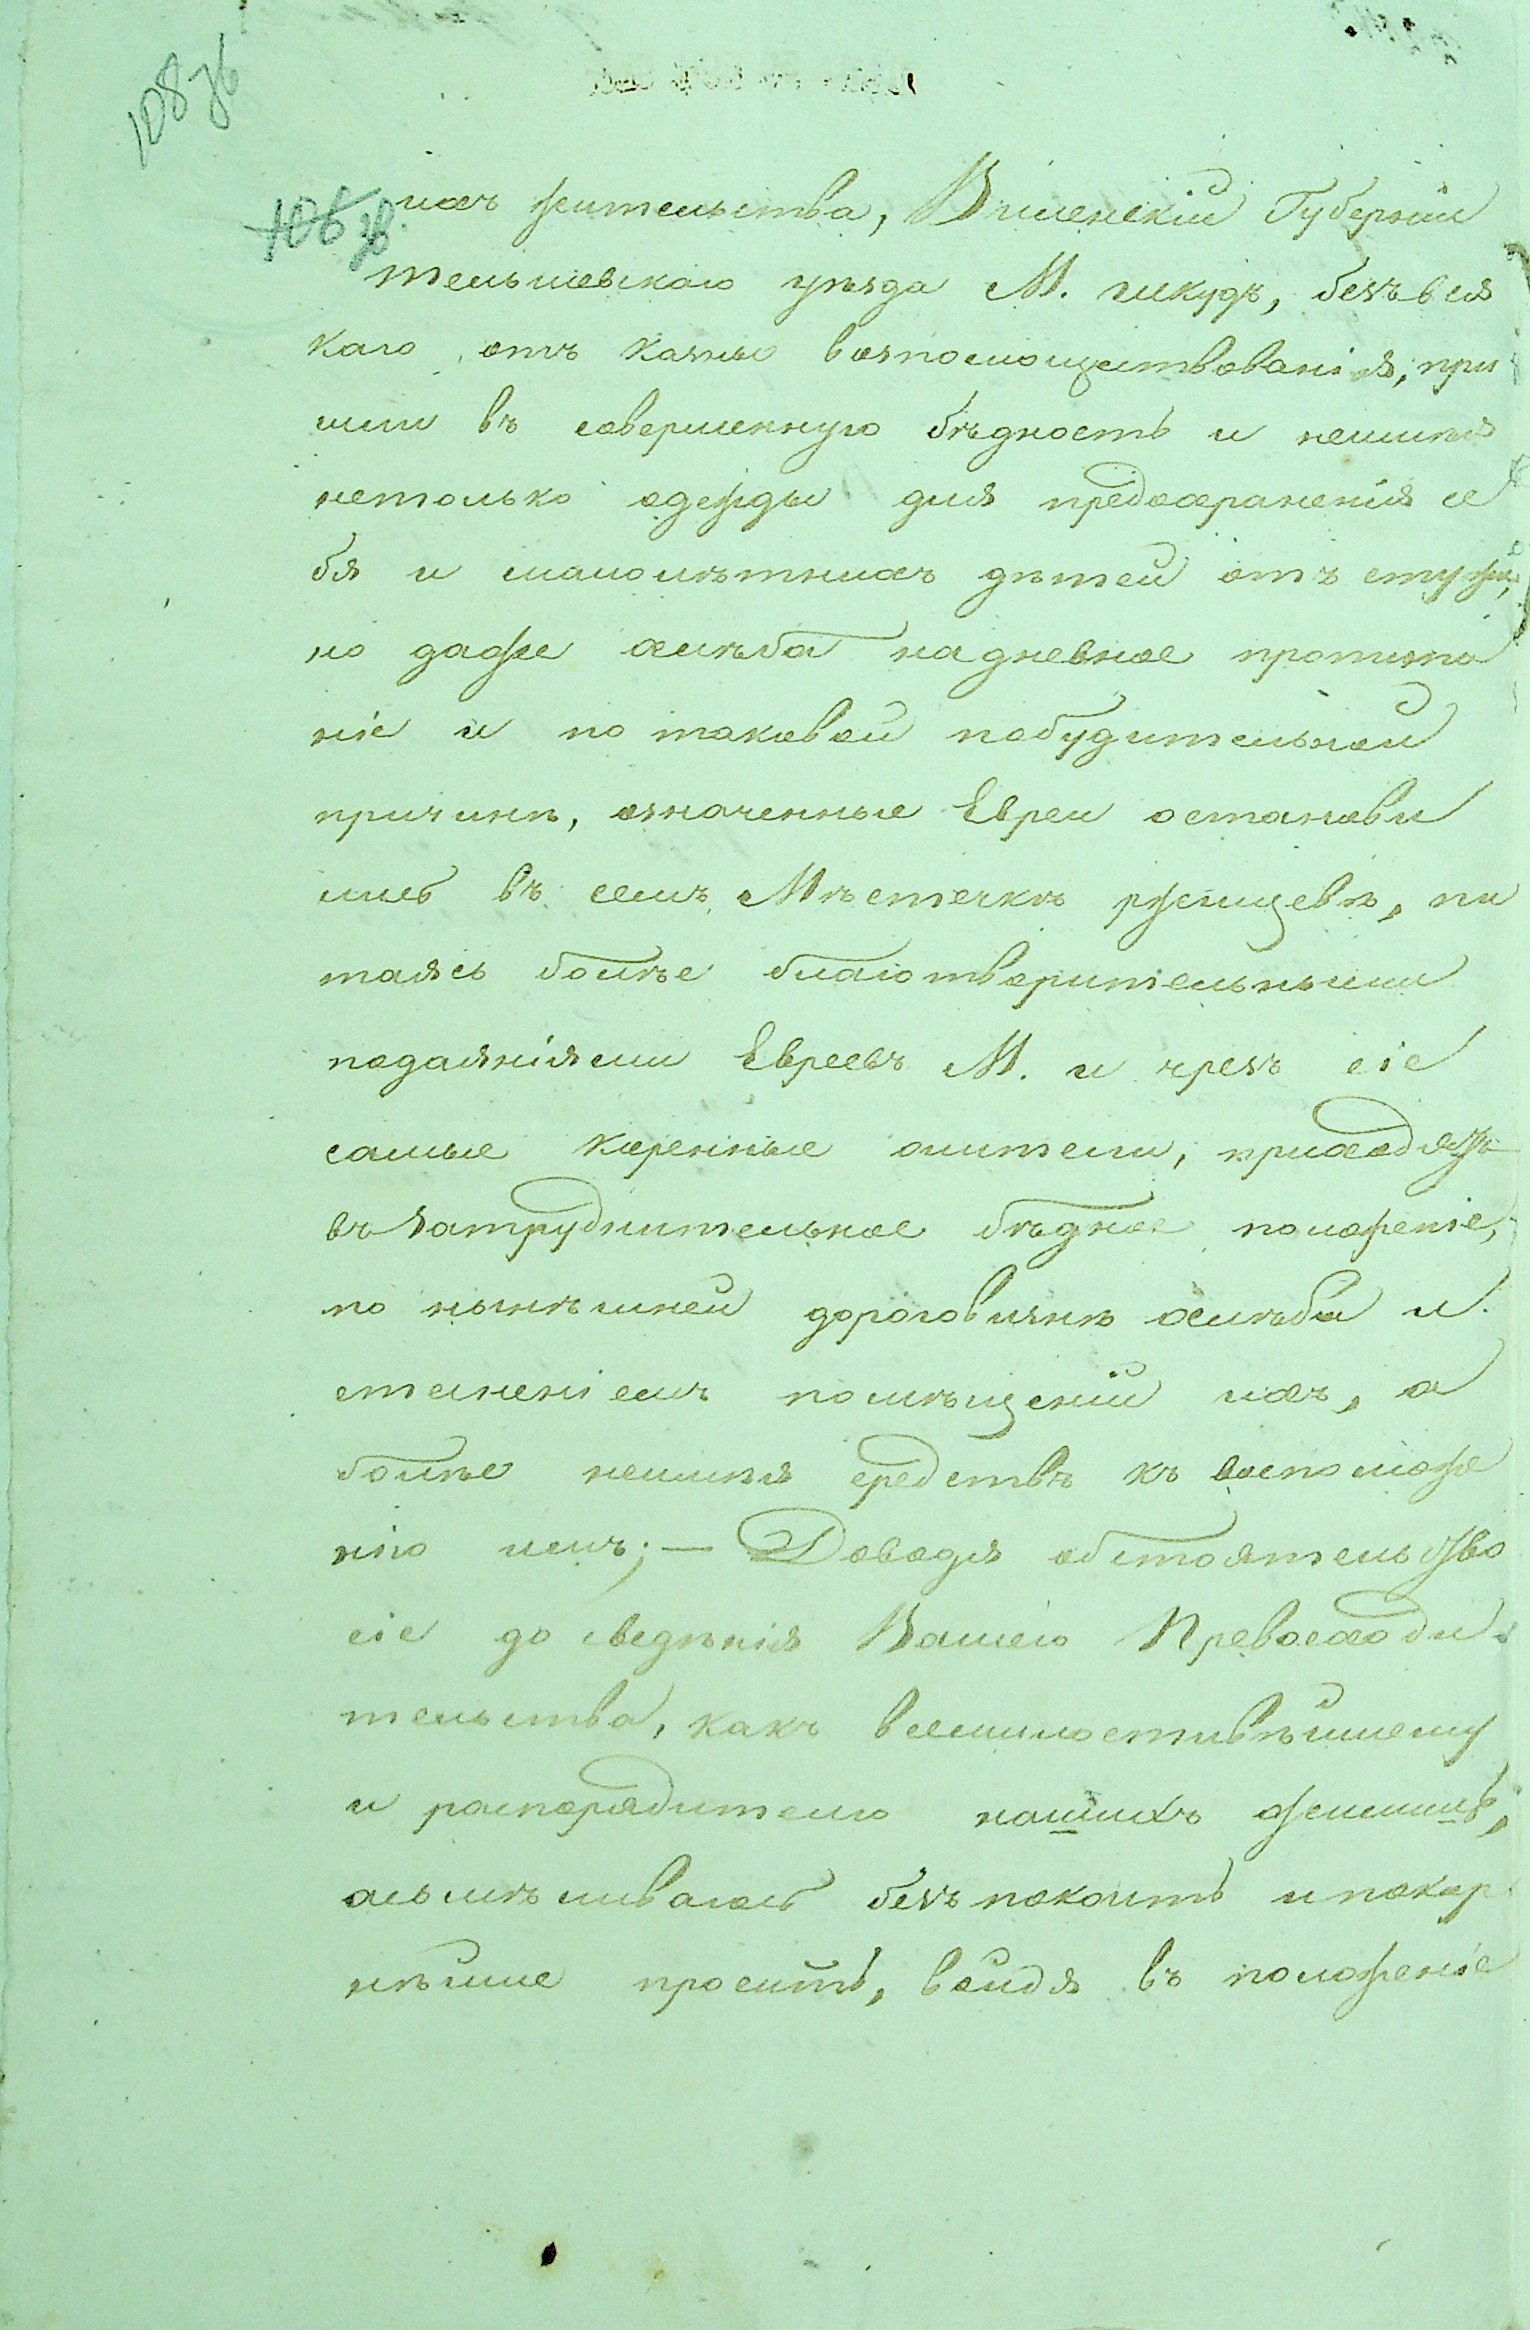 108 зб
106 зв.
ихъ жительства, Виленскій Губерніи
тельшевскаго уѣзда М. шкудъ, безъ вся
каго отъ казны вазпомоществованія, при
шли въ совершенную бѣдность и неимѣя
нетолько одежды для предохраненія се
бя и малолѣтнихъ дѣтей отъ стужи,
но даже хлѣба на дневное пропита
ніе и по таковой побудительной
причинѣ, означенные Евреи останови
лись въ семъ Мѣстечкѣ ржищевѣ, пи
таясь болѣе благотворительными
подаяніями Евреевъ М. и чрезъ сіе
самые коренные жители, приходятъ
въ затруднительное бѣдное положеніе,
по нынѣшней дороговизнѣ хлѣба и
стеченіемъ помѣщеній ихъ, а
болѣе неимѣя средствъ къ воспоможе
нію имъ; — Доводя обстоятельство
сіе до сведѣнія Вашего Превосходи
тельства, какъ всемилостивѣйшему
и распорядителю нашихъ
осьмѣливаюсь безпокоить и покор
нѣйше просить, войдя въ положеніе